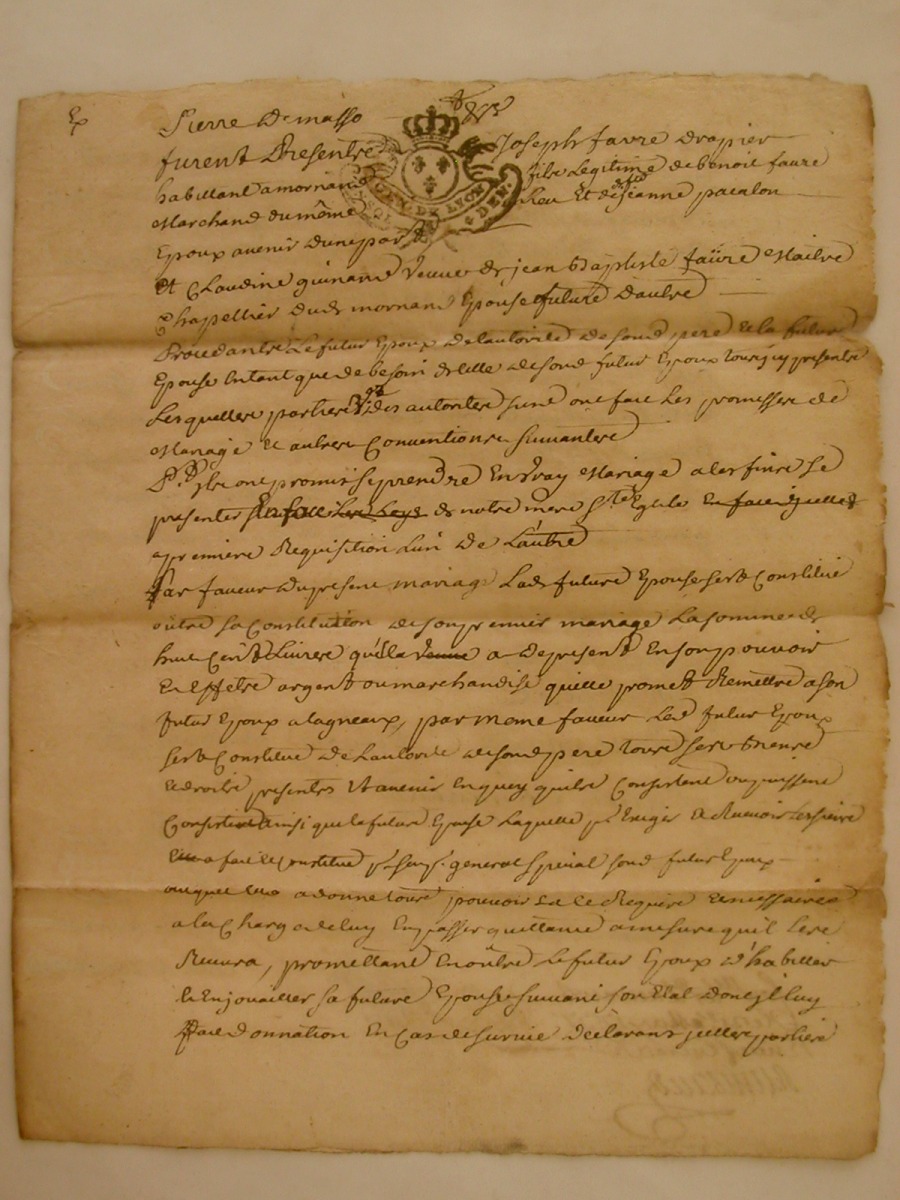 Ex
Pierre Demasso
furent Presentre Joseph favre drapier
habittant a mornand fils Legitime de benoit faure
Marchand du même Lieu Et de jeanne pacalon
GEN. DE LYON
Epoux avenir dune part
et Claudine guinand veuve de jean Baptiste faure Maitre
Chapellier dud mornand Epouse future dautre
Procedantre Le futur Epoux de lautorité de sond pere et la future
Epouse Entant que de besoin de celle de sond futur Epoux toure jcy presentre
Lesquellere partiere des autoritere sund ont fait Les promessere de
Mariage et autrere Conventionre suivantere
ont promis se prendre En vray Mariage a les fins se
presenter En face Les Loys de notre mere Ste Eglise
a premiere Requisition Lun de Lautre
Par faveur du present mariage Lad future Epouse sest Constitué
outre sa Constitution de son premier mariage La somme de
huit Cent Livrere quelle a de present En son pouvoir
En Effetre argent ou marchandise quelle promet Remettre a son
futur Epoux a lagneaux, par meme faveur Led futur Epoux
sest Constitué de Lautorité de sond pere toure sere bienre
et droitre presentre Et avenir En quoy quilre Consistent ou puissent
Consister ainsi que la future Epouse Laquelle pr Exiger et Recevoir
a fait et Constitué general special sond futur Epoux
auquel a donné toure pouvoir Require et necessairere
a la Charge de luy En passer quittance a mesure quil Lere
Recevra, promettant En outre Le futur Epoux d'habiller
et Enjoailler sa future Epouse suivant son Etat dont jl luy
fait donnation En Cas de survie declarant partiere